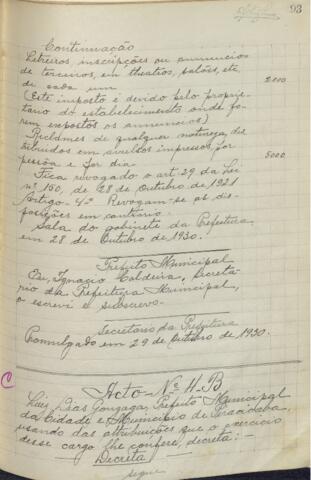 93
Continuação
Letreiros, inscripções ou annuncios
de terceiros, em theatros, salões, etc
de cada um 2000
(Este imposto é devido pelo proprie-
tario do estabelecimento onde fo-
rem expostos os annuncios)
Reclames de qualquer natureza, dis
tribuidos em avulsos impressos, por
pessôa e por dia 5000
Fica revogado o art. 29 da Lei
nº 150, de 28 de Outubro de 1921
Artigo - 4º Revogam-se as dis-
posições em contrario.
Sala do gabinete da Prefeitura
em 28 de Outubro de 1930.
Prefeito Municipal
Eu, Ignacio Caldeira, Secretá-
rio da Prefeitura Municipal,
o escrevi e subscrevo.
Secretario da Prefeitura
Promulgado em 29 de Outubro de 1930.
Acto Nº 4-B
Luiz Dias Gonzaga, Prefeito Municipal
da Cidade e Municipio de Piracicaba,
usando das attribuições que o exercicio
desse cargo lhe confere, decreta:-
Decreta
segue